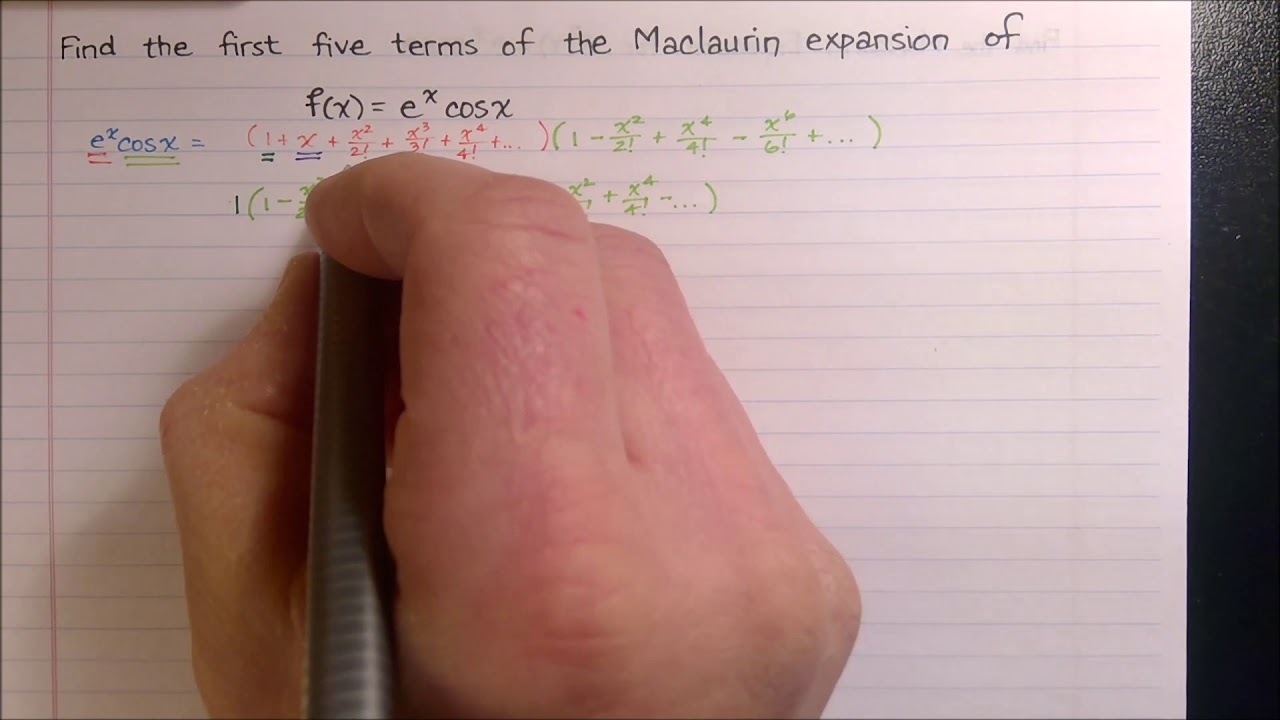 Find the first five terms of the Maclaurin expansion of
f(x) = e^x cosx
e^x cosx = (1 + x + x²/2! + x³/3! + x⁴/4! + ... )(1 - x²/2! + x⁴/4! - x⁶/6! + ... )
1(1 - x² + x⁴/4! - ... )